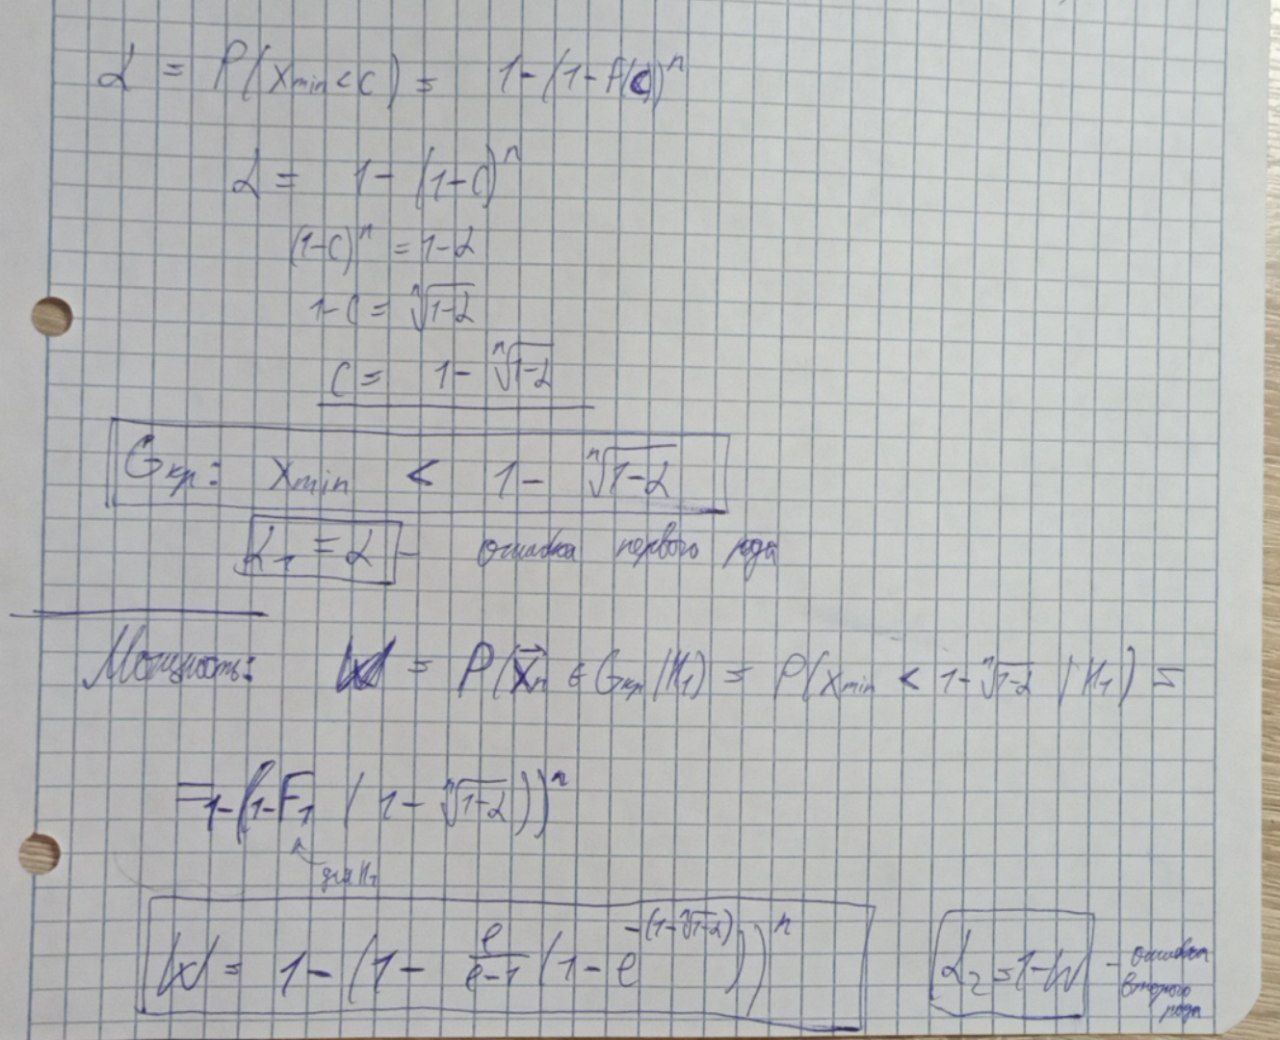 α = P(Xmin < C) = 1-(1-F(C))^n
α = 1-(1-C)^n
(1-C)^n = 1-α
1-C = ⁿ√(1-α)
C = 1- ⁿ√(1-α)
Gкр: Xmin < 1- ⁿ√(1-α)
α₁ = α - ошибка первого рода
Мощность: W = P(X⃗n ∈ Gкр | H₁) = P(Xmin < 1-ⁿ√(1-α) | H₁) =
= 1-(1-F₁(1-ⁿ√(1-α)))^n
для H₁
W = 1-(1- e/(e-1) (1-e^(-(1-ⁿ√(1-α)))))^n
α₂ = 1-W - ошибка
второго
рода